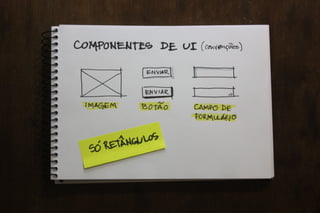 COMPONENTES DE UI (CONVENÇÕES)
ENVIAR
ENVIAR
IMAGEM BOTÃO CAMPO DE
FORMULÁRIO
SÓ RETÂNGULOS